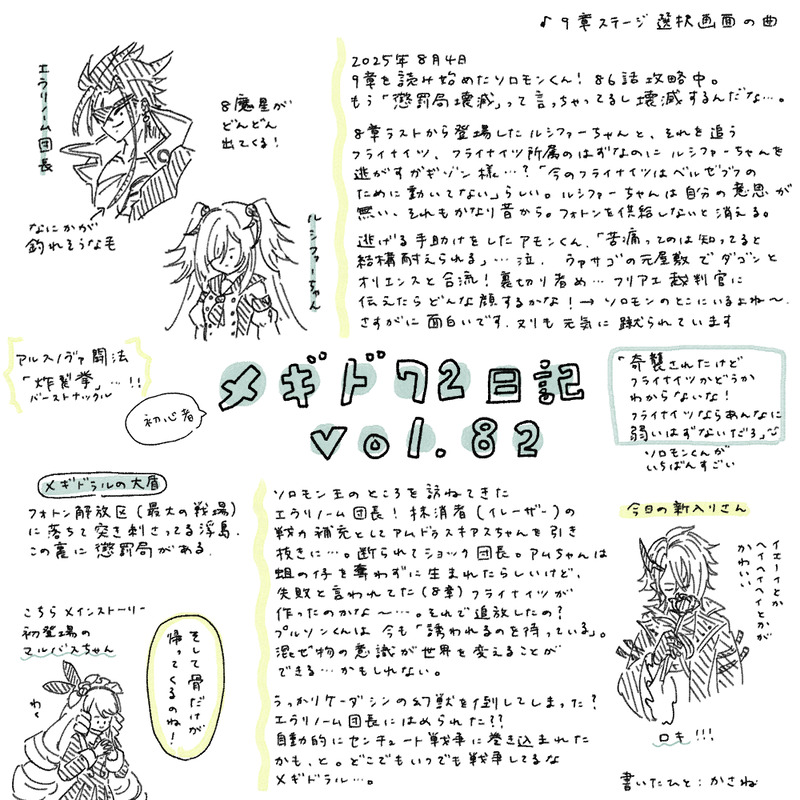 ♪ 9章ステージ選択画面の曲
2025年8月4日
9章を読み始めたソロモンくん！86話攻略中。
もう「懲罰局壊滅」って言っちゃってるし壊滅するんだな…。
8章ラストから登場したルシファーちゃんと、それを追う
フライナイツ、フライナイツ所属のはずなのにルシファーちゃんを
逃がすがギゾン様…？「今のフライナイツはベルゼブフの
ために動いてない」らしい。ルシファーちゃんは自分の意思が
無い、それもかなり昔から。フォトンを供給しないと消える。
逃げる手助けをしたアモンくん、「苦痛ってのは知ってると
結構耐えられる」…泣、ヴァサゴの元屋敷でダゴンと
オリエンスと合流！裏切り者め…フリアエ裁判官に
伝えたらどんな顔するかな！→ソロモンのとこにいるよね〜.
さすがに面白いです.ヌリも元気に蹴られています
エラリノーム団長
8魔星が
どんどん
出てくる！
なにかが
釣れそうな毛
ルシファーちゃん
アルスノヴァ闘法
「炸裂拳」…!!
バーストナックル
初心者
メギド72日記
vol.82
「奇襲されたけど
フライナイツかどうか
わからないな！
フライナイツならあんなに
弱いはずないだろ」
ソロモンくんが
いちばんすごい
メギドラルの大盾
フォトン解放区(最大の戦場)
に落ちて突き刺さってる浮島.
この裏に懲罰局がある.
こちらメインストーリー
初登場の
マルバスちゃん
わく
そして骨だけが
帰ってくるのね！
ソロモン王のところを訪ねてきた
エラリノーム団長！抹消者(イレーザー)の
戦力補充としてアムドゥスキアスちゃんを引き
抜きに…。断られてショック団長。アムちゃんは
蛆の仔を奪わずに生まれたらしいけど、
失敗と言われてた(8章)フライナイツが
作ったのかな〜…。それで追放したの？
プルソンくんは今も「誘われるのを待っている」。
混ぜ物の意識が世界を変えることが
できる…かもしれない。
うっかりケーダシンの幻獣を倒してしまった？
エラリノーム団長にはめられた??
自動的にセンチュート戦争に巻き込まれた
かも、と。どこでもいつでも戦争してるな
メギドラル…。
今日の新入りさん
イエーイとか
ヘイヘイヘイとかが
かわいい
ロキ!!!
書いたひと：かさね